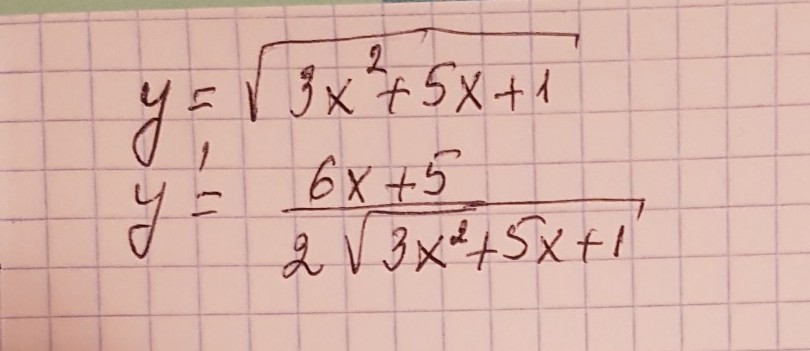 y = √(3x² + 5x + 1)
y' = (6x + 5) / (2√(3x² + 5x + 1))